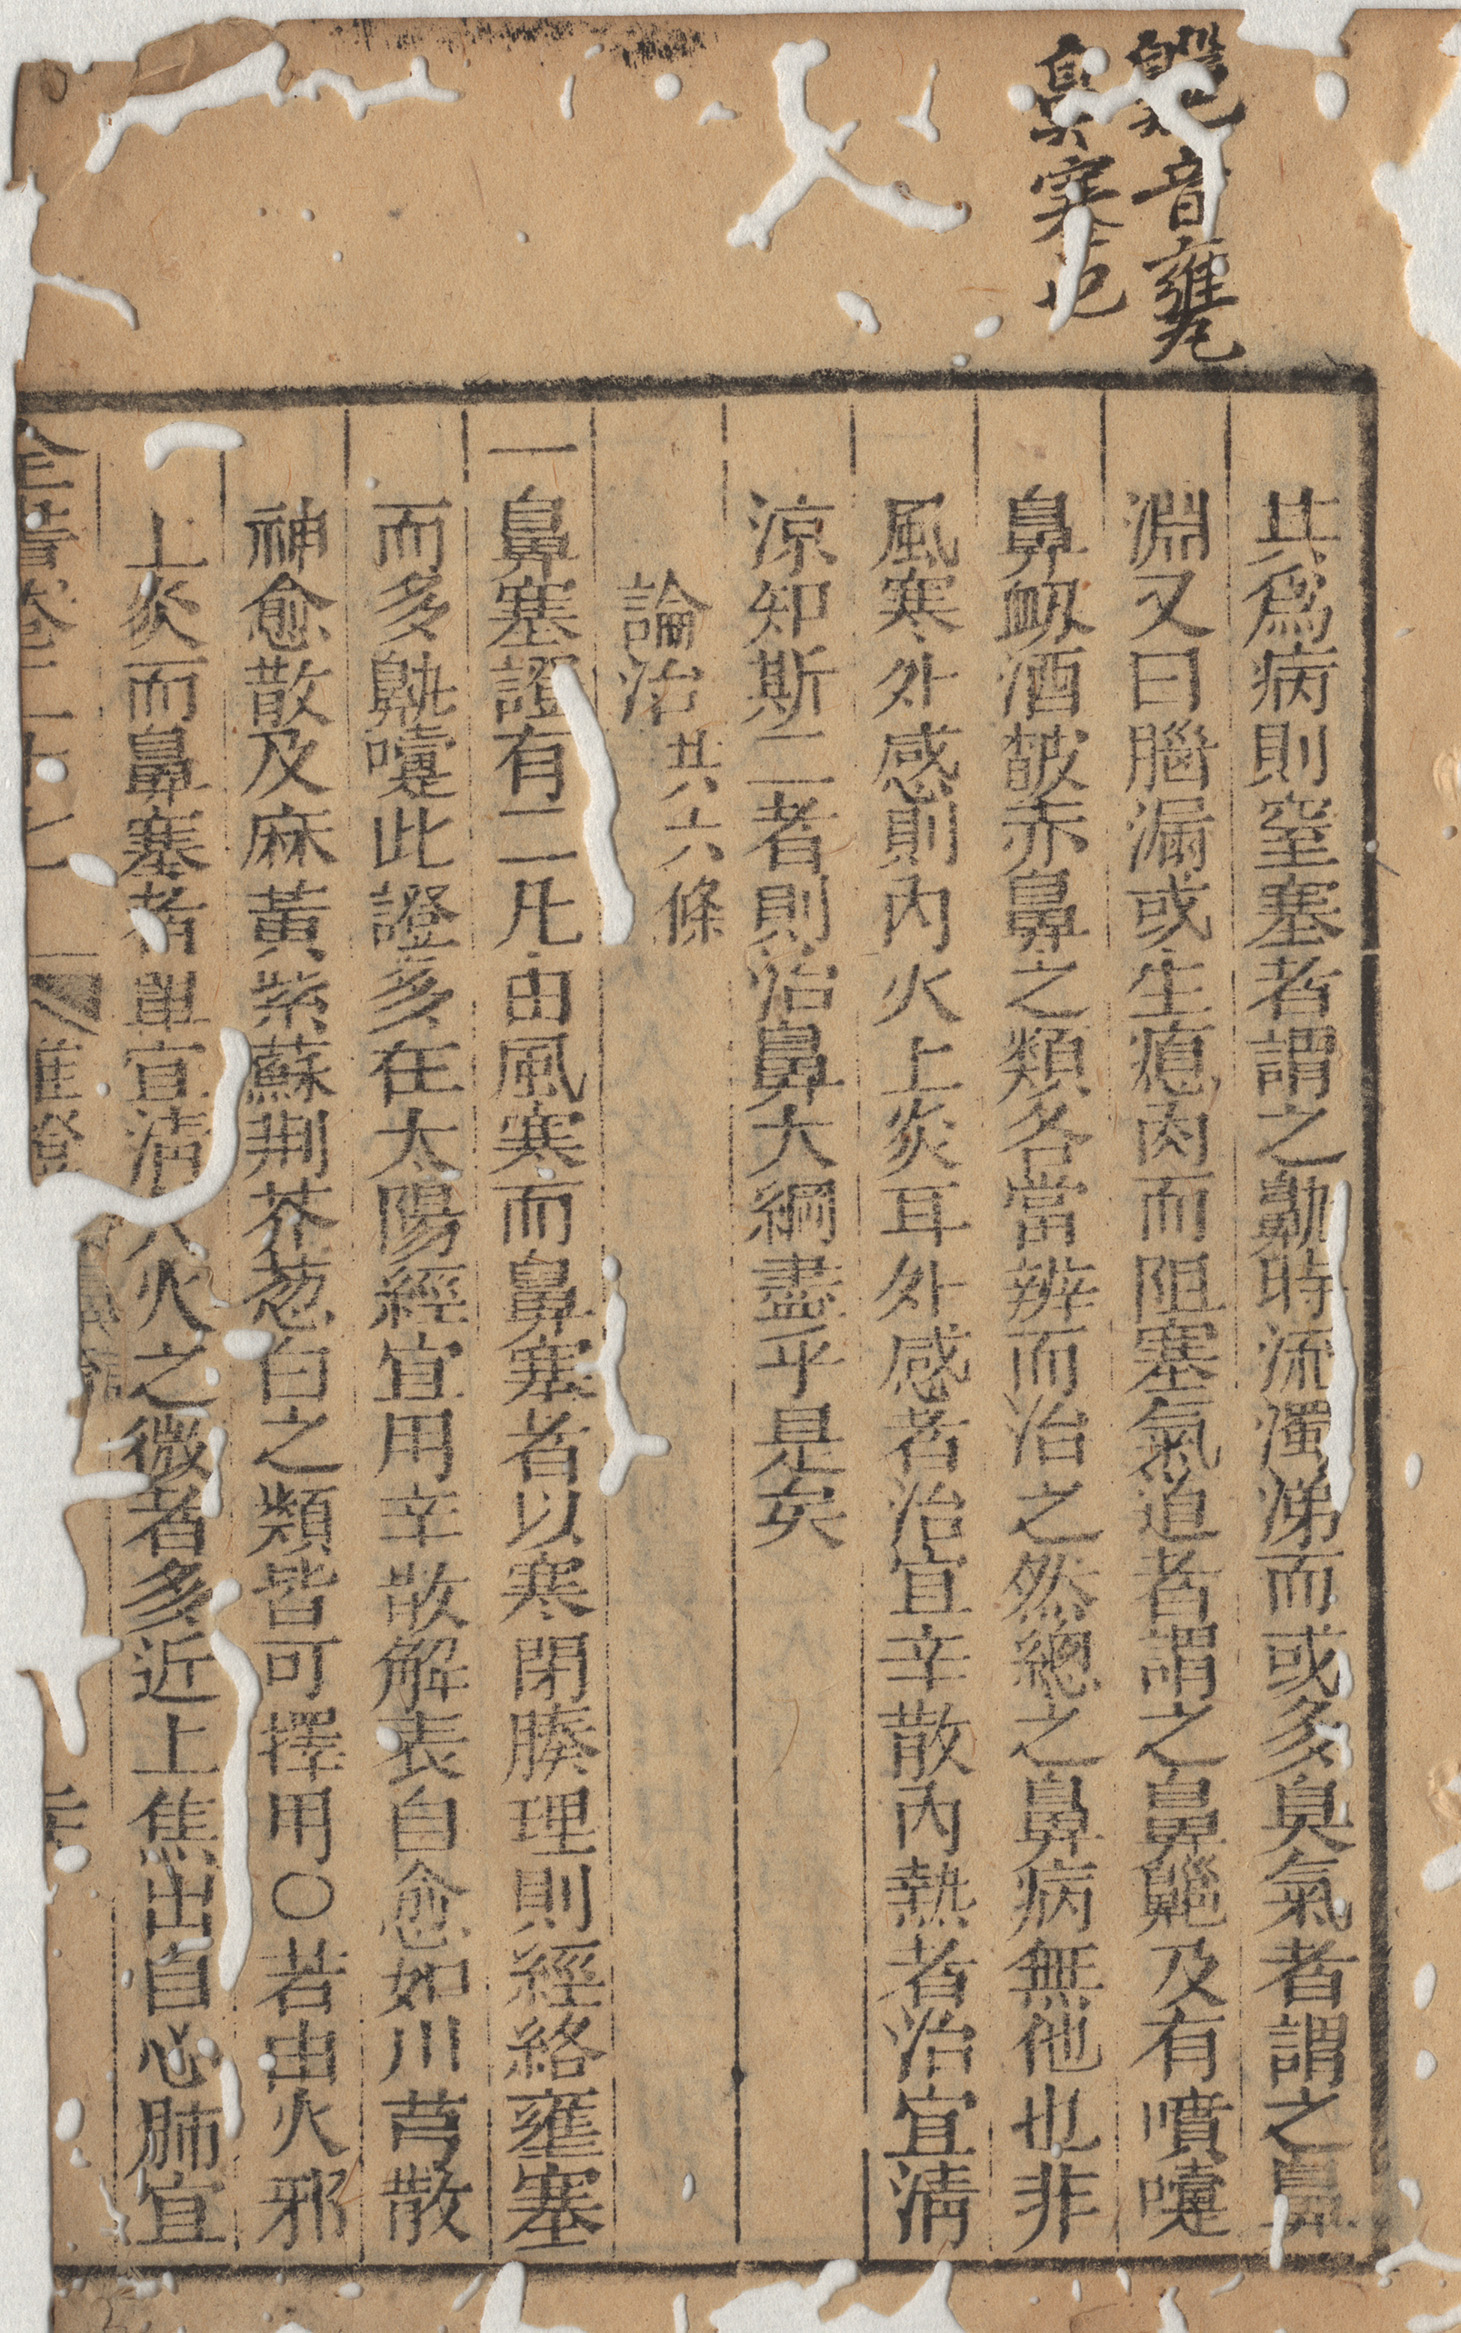 齆音甕
鼻塞也
其爲病則窒塞者謂之鼽時流濁涕而或多臭氣者謂之鼻
淵又曰腦漏或生瘜肉而阻塞氣道者謂之鼻齆及有噴嚏
鼻衂酒皶赤鼻之類各當辨而治之然總之鼻病無他也非
風寒外感則内火上炎耳外感者治宜辛散内熱者治宜清
涼知斯二者則治鼻大綱盡乎是矣
論治共六條
一鼻塞證有二凡由風寒而鼻塞者以寒閉腠理則經絡壅塞
而多鼽嚏此證多在太陽經宜用辛散解表自愈如川芎散
神愈散及麻黃紫蘇荆芥葱白之類皆可擇用〇若由火邪
上炎而鼻塞者單宜清火火之微者多近上焦出自心肺宜
全書卷二十七